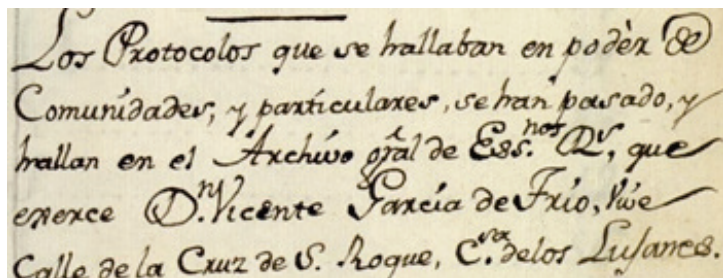 Los Protocolos que se hallaban en podèr de
Comunidades, y particulares, se han pasado, y
hallan en el Archivo gr̃al de Ess.nos R.s, que
exerce D.n Vicente García de Frio, Vive
Calle de la Cruz de S. Roque, C.sa de los Lujanes.